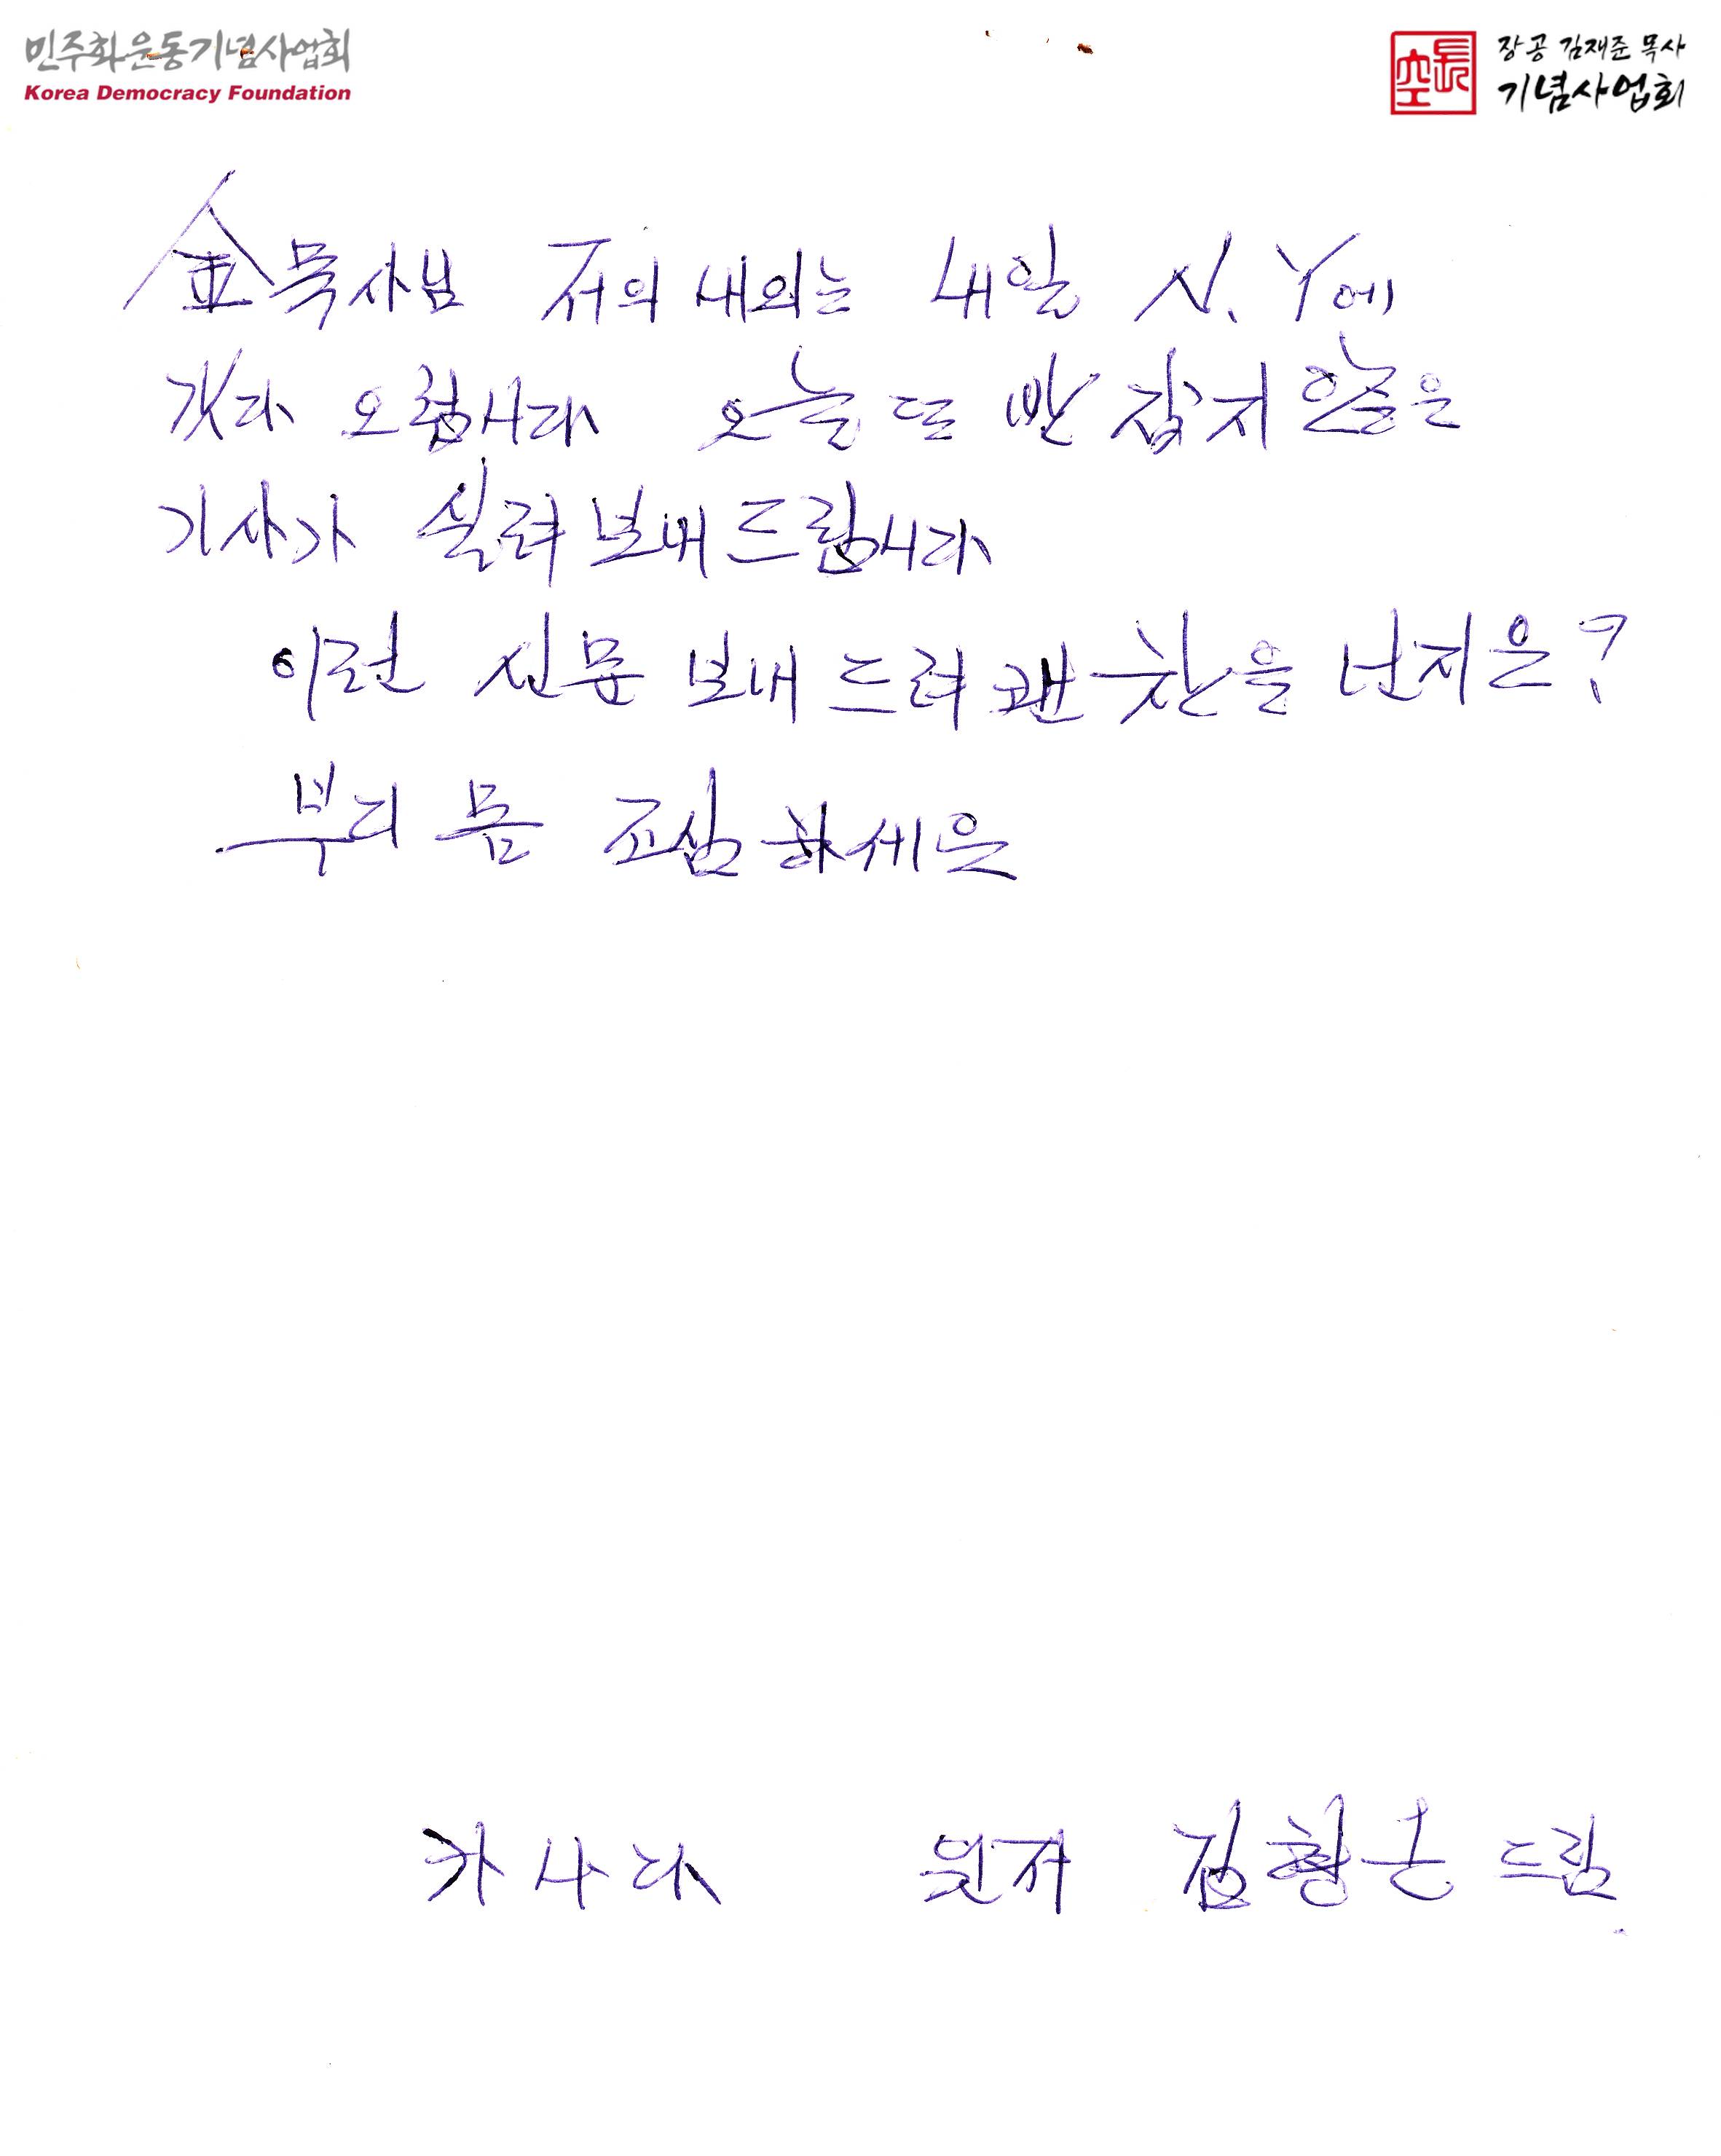 민주화운동기념사업회
Korea Democracy Foundation
長空
장공 김재준 목사
기념사업회
金 목사님 저의 내외는 내일 N.Y에
갓다 오렴니다 오늘 또 반갑지 않은
기사가 실려 보내드림니다
이런 신문 보내드려 괜찬을 넌지은?
부디 몸 조심하세은
카나다 김형근 드림